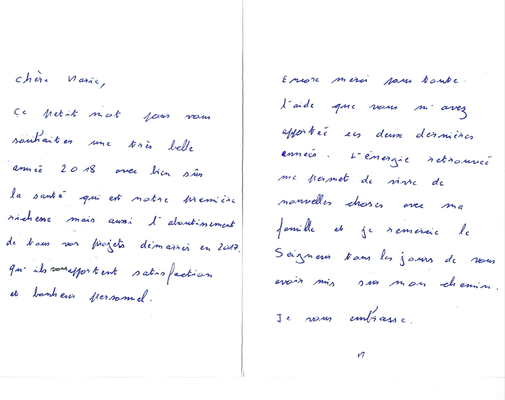 Chère Marie,
Ce petit mot pour vous
souhaiter une très belle
année 2018 avec bien sûr
la santé qui est notre première
richesse mais aussi l'aboutissement
de tous vos projets démarrés en 2017.
qu'ils vous apportent satisfaction
et bonheur personnel.
Encore merci pour toute
l'aide que vous m'avez
apportée ces deux dernières
années. L'énergie retrouvée
me permet de vivre de
nouvelles choses avec ma
famille et je remercie le
Seigneur tous les jours de vous
avoir mis sur mon chemin.
Je vous embrasse.